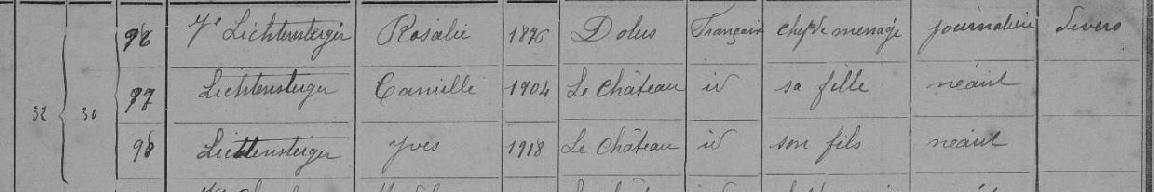 96 Ve Lichtensteiger Rosalie 1876 Dolus Française chef de ménage journalière divers
32 30 97 Lichtensteiger Camille 1904 Le Château id sa fille néant
98 Lichtensteiger Yves 1918 Le Château id son fils néant